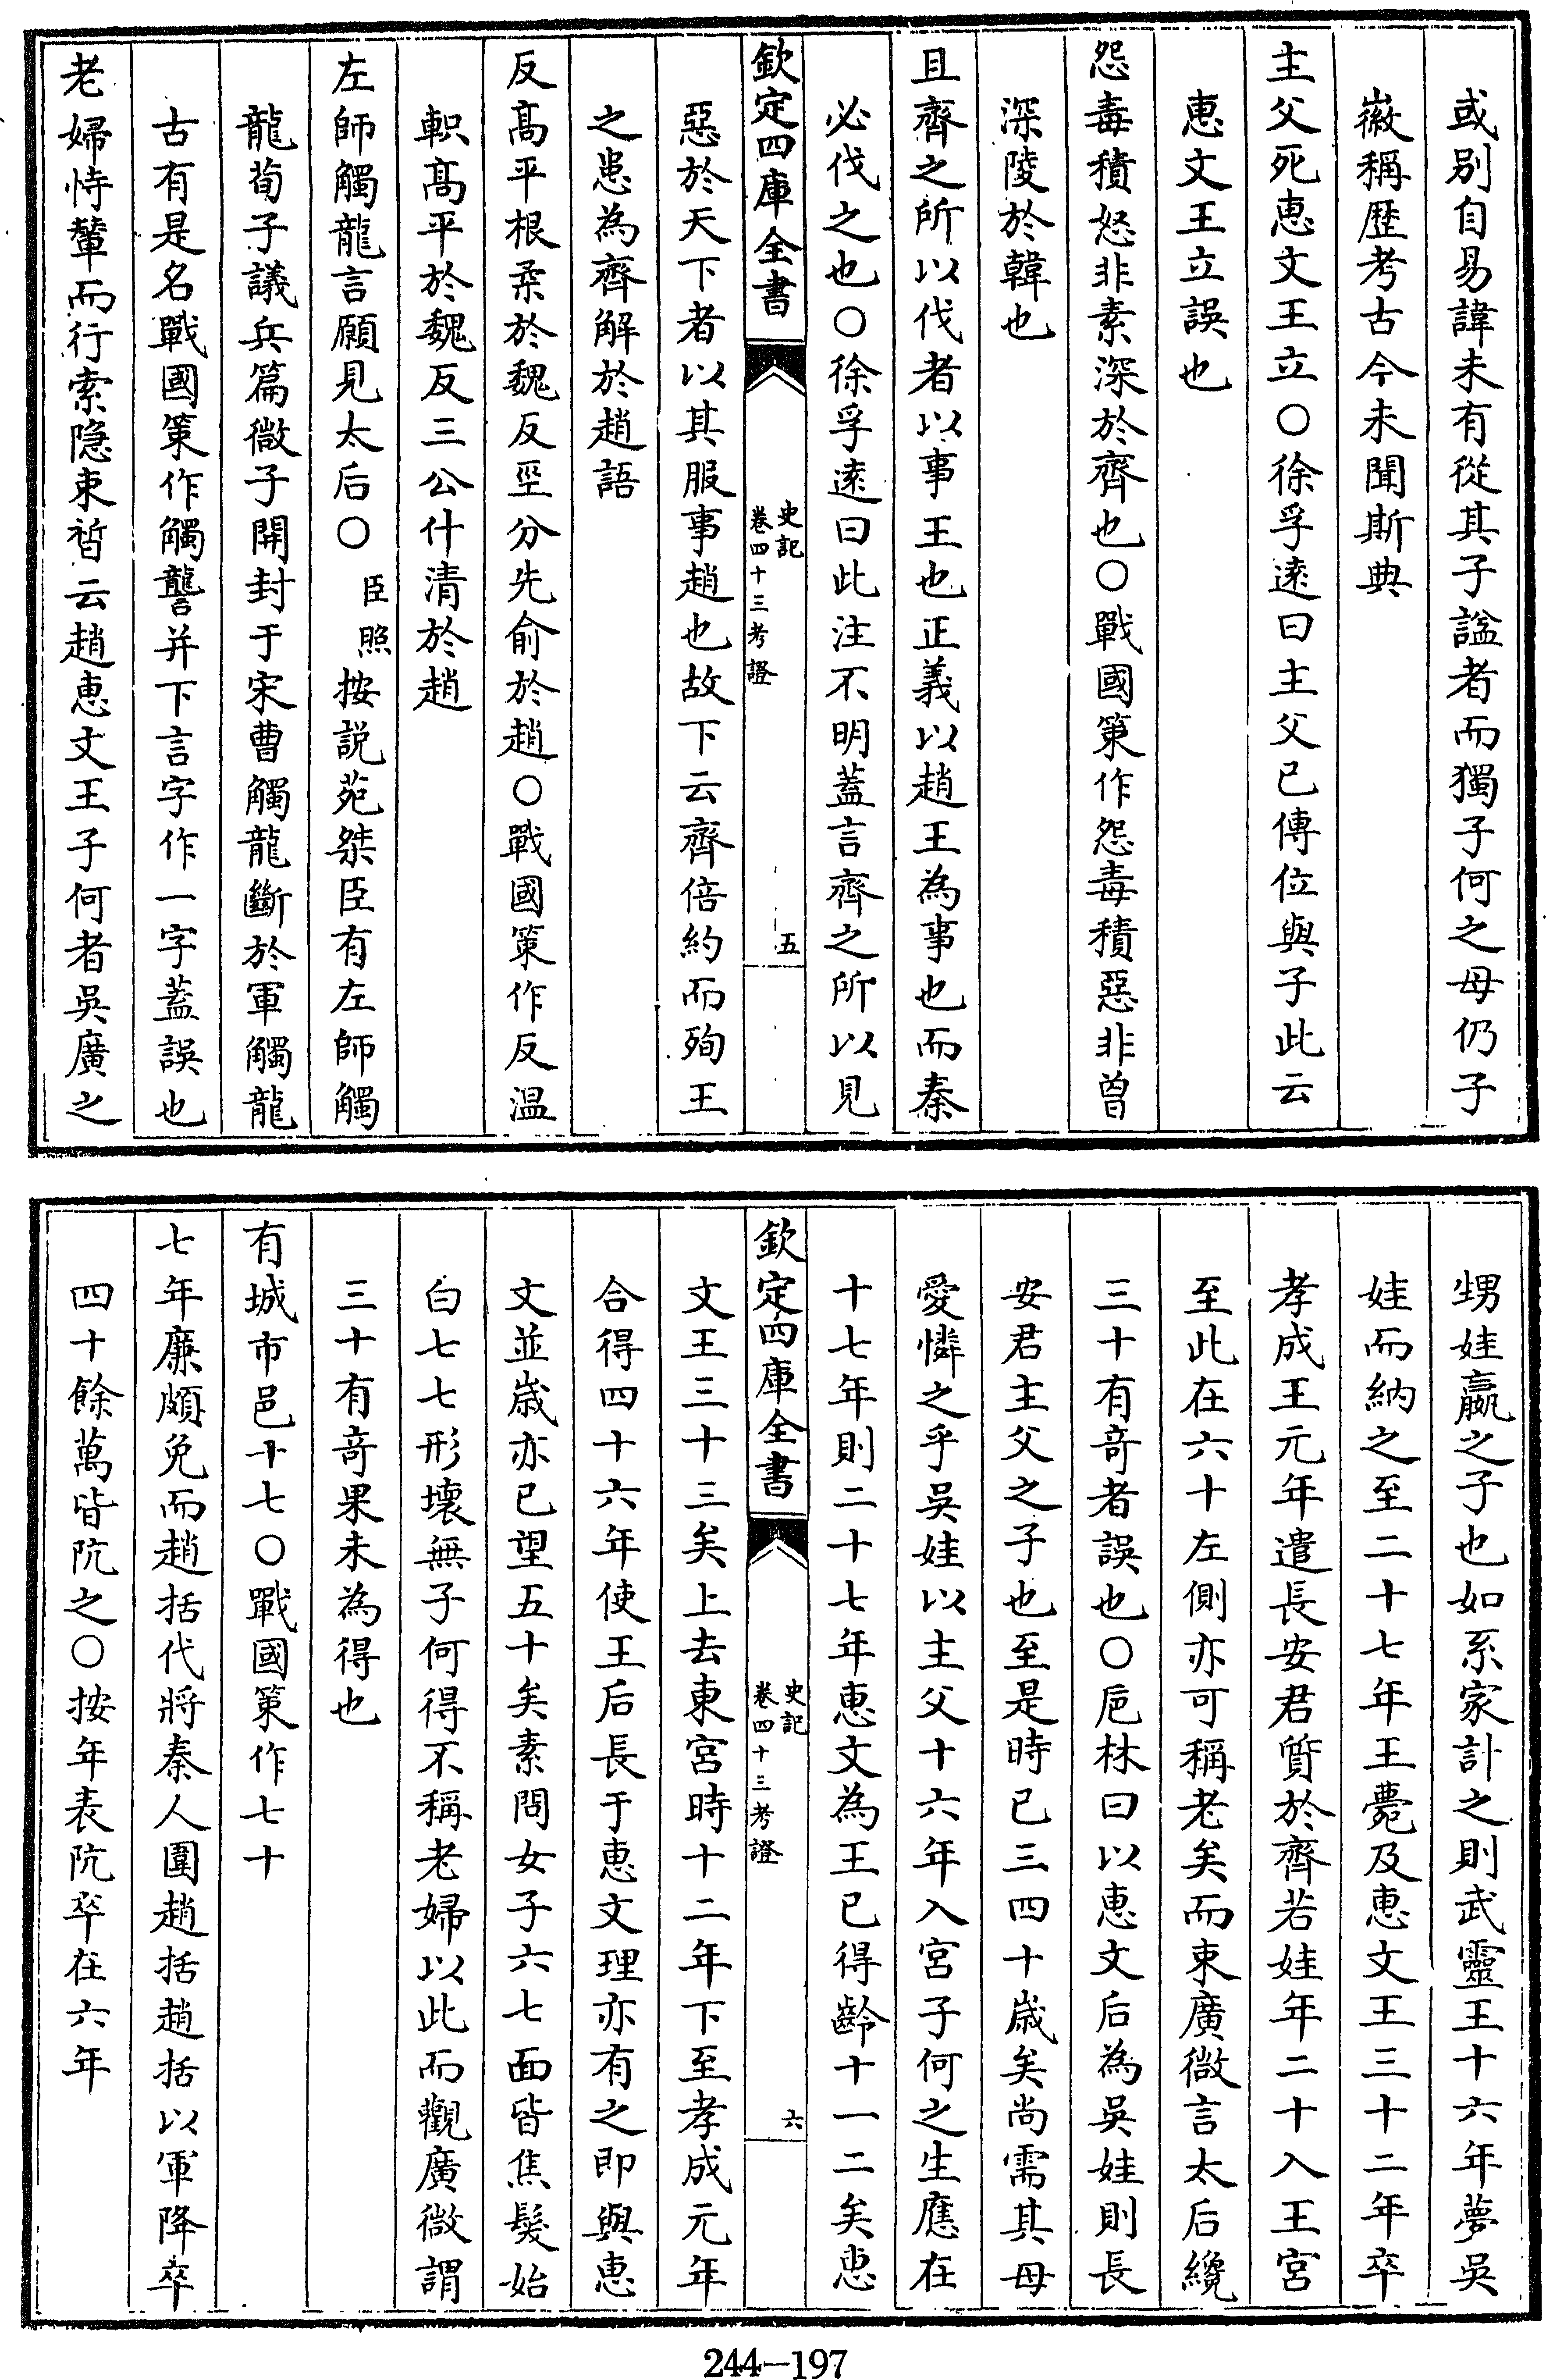 或别自易諱未有從其子諡者而獨子何之母仍子
嶶稱歴考古今未聞斯典
主父死惠文王立〇徐孚逺曰主父已傳位與子此云
惠文王立誤也
怨毒積怒非素深於齊也〇戰國策作怨毒積惡非曾
深陵於韓也
且齊之所以伐者以事王也正義以趙王為事也而秦
必伐之也〇徐孚逺曰此注不明蓋言齊之所以見
欽定四庫全書
史記
卷四十三考證
五
惡於天下者以其服事趙也故下云齊倍約而殉王
之患為齊解於趙語
反髙平根柔於魏反巠分先俞於趙〇戰國策作反温
軹髙平於魏反三公什清於趙
左師觸龍言願見太后〇臣照按説苑桀臣有左師觸
龍荀子議兵篇微子開封于宋曹觸龍斷於軍觸龍
古有是名戰國策作觸讋并下言字作一字蓋誤也
老婦恃輦而行索隠束晳云趙惠文王子何者吳廣之
甥娃嬴之子也如系家計之則武靈王十六年夢吳
娃而納之至二十七年王薨及惠文王三十二年卒
孝成王元年遣長安君質於齊若娃年二十入王宮
至此在六十左側亦可稱老矣而束廣微言太后纔
三十有奇者誤也〇巵林曰以惠文后為吳娃則長
安君主父之子也至是時已三四十歲矣尚需其母
愛憐之乎吳娃以主父十六年入宮子何之生應在
十七年則二十七年惠文為王已得齡十一二矣惠
欽定四庫全書
史記
卷四十三考證
六
文王三十三矣上去東宮時十二年下至孝成元年
合得四十六年使王后長于惠文理亦有之即與惠
文並歲亦已望五十矣素問女子六七面皆焦髮始
白七七形壞無子何得不稱老婦以此而觀廣微謂
三十有奇果未為得也
有城市邑十七〇戰國策作七十
七年廉頗免而趙括代將秦人圍趙括趙括以軍降卒
四十餘萬皆阬之〇按年表阬卒在六年
244—197